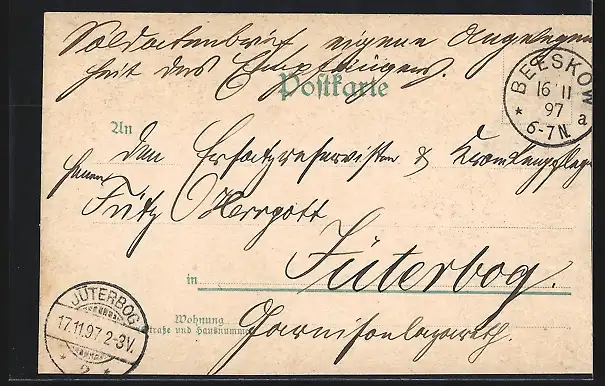 Soldatenbrief eigene Angelegen
heit des Empfängers.
Postkarte
BEESKOW
16 11
97
6-7N.
* a
An
den Ersatzreservisten & Krankenpfleger
Herrn
Fritz Herrgott
in Jüterbog.
Wohnung
Straße und Hausnummer
Garnisonlazareth.
JÜTERBOG
17.11.97 2-3V.
* 2 *